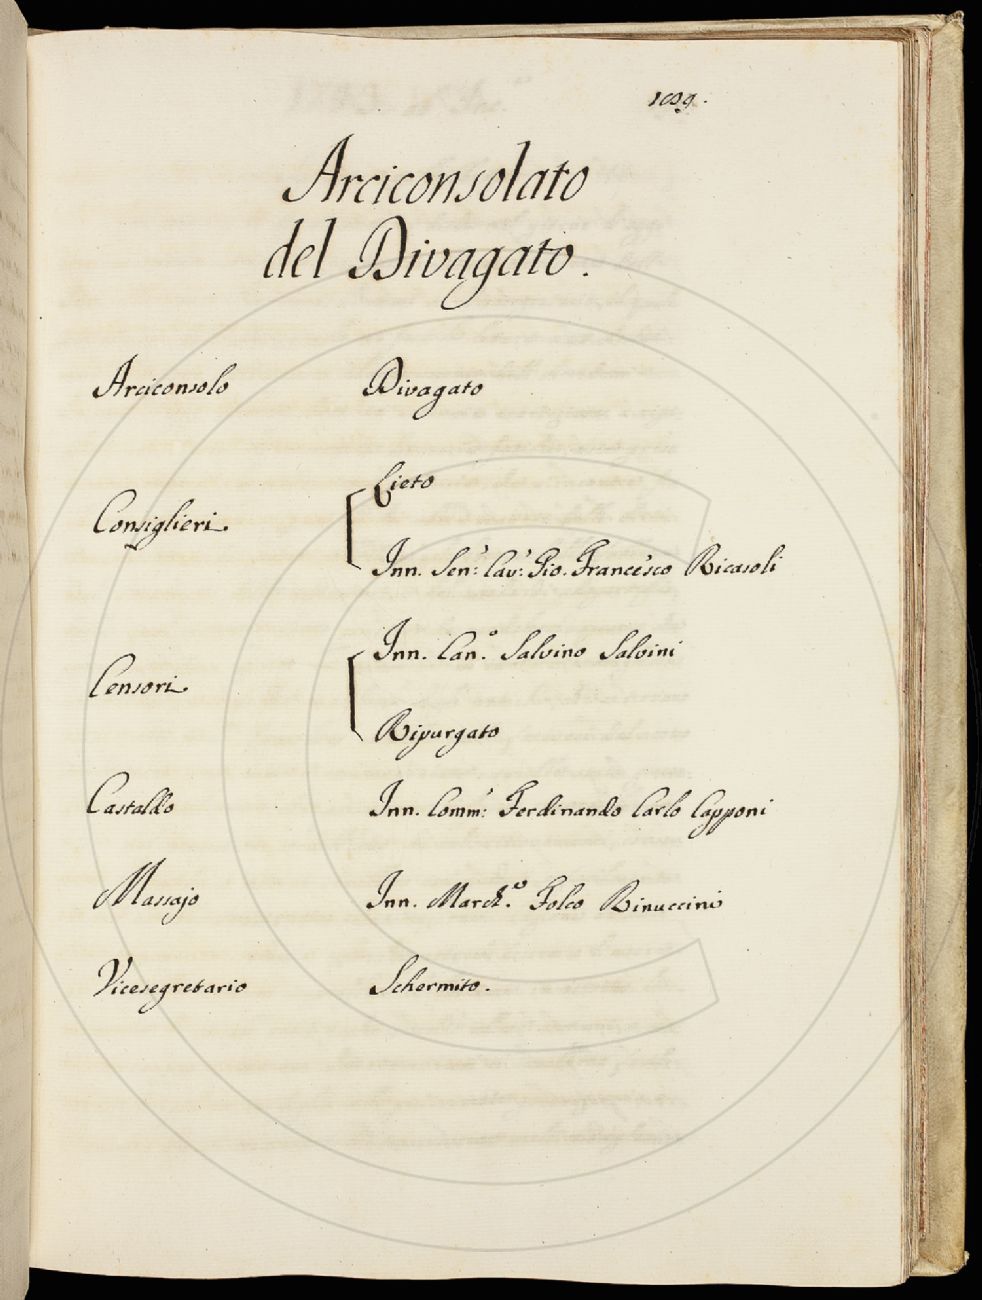 Arciconsolato
del Divagato.
Arciconsolo Divagato
Lieto
Consiglieri
Inn. Sen.r Cav.r Gio. Francesco Ricasoli
Inn. Can.o Salvino Salvini
Censori
Ripurgato
Castaldo Inn. Comm.r Ferdinando Carlo Capponi
Massajo Inn. March.o Folco Rinuccini
Vicesegretario Schermito.